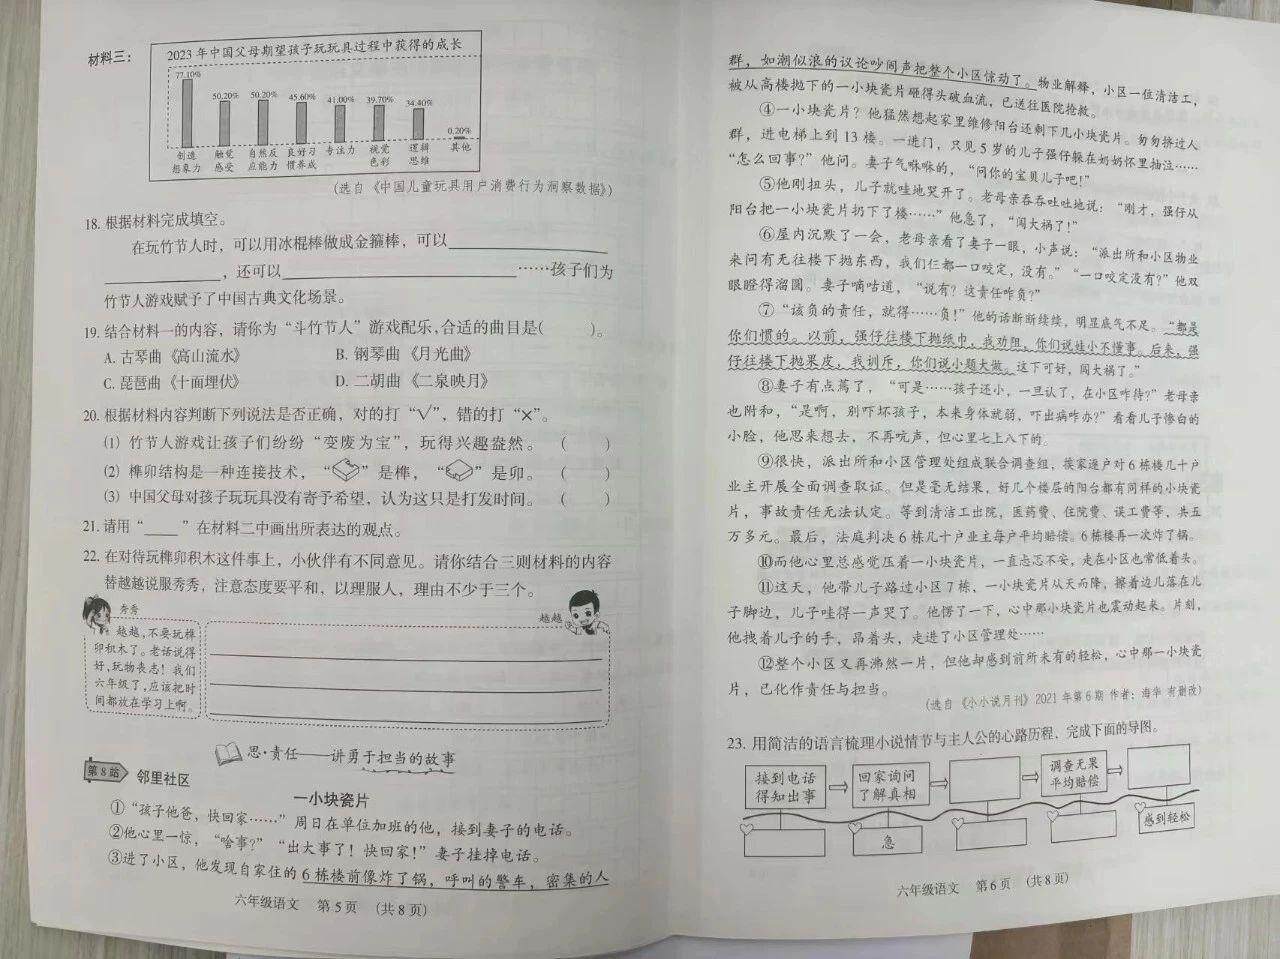 材料三：
2023年中国父母期望孩子玩玩具过程中获得的成长
77.10%
50.20% 50.20% 45.60% 41.00% 39.70% 34.40%
0.20%
创造想象力 触觉感受 自然反应能力 良好习惯养成 专注力 视觉色彩 逻辑思维 其他
(选自《中国儿童玩具用户消费行为洞察数据》)
18. 根据材料完成填空。
在玩竹节人时，可以用冰棍棒做成金箍棒，可以
，还可以 ……孩子们为
竹节人游戏赋予了中国古典文化场景。
19. 结合材料一的内容，请你为“斗竹节人”游戏配乐,合适的曲目是( )。
A. 古琴曲《高山流水》 B. 钢琴曲《月光曲》
C. 琵琶曲《十面埋伏》 D. 二胡曲《二泉映月》
20. 根据材料内容判断下列说法是否正确，对的打“√”，错的打“×”。
(1) 竹节人游戏让孩子们纷纷“变废为宝”，玩得兴趣盎然。 ( )
(2) 榫卯结构是一种连接技术，“ ”是榫，“ ”是卯。 ( )
(3) 中国父母对孩子玩玩具没有寄予希望，认为这只是打发时间。 ( )
21. 请用“____”在材料二中画出所表达的观点。
22. 在对待玩榫卯积木这件事上，小伙伴有不同意见。请你结合三则材料的内容
替越越说服秀秀，注意态度要平和，以理服人，理由不少于三个。
秀秀
越越，不要玩榫
卯积木了。老话说得
好,玩物丧志！我们
六年级了,应该把时
间都放在学习上啊。
越越
思·责任——讲勇于担当的故事
第8站 邻里社区
一小块瓷片
①“孩子他爸，快回家……”周日在单位加班的他，接到妻子的电话。
②他心里一惊，“啥事?”“出大事了！快回家!”妻子挂掉电话。
③进了小区，他发现自家住的6栋楼前像炸了锅，呼叫的警车，密集的人
六年级语文 第5页 (共8页)
群，如潮似浪的议论吵闹声把整个小区惊动了。物业解释，小区一位清洁工，
被从高楼抛下的一小块瓷片砸得头破血流，已送往医院抢救。
④一小块瓷片？他猛然想起家里维修阳台还剩下几小块瓷片。匆匆挤过人
群，进电梯上到13楼。一进门，只见5岁的儿子强仔躲在奶奶怀里抽泣……
“怎么回事?”他问。妻子气咻咻的，“问你的宝贝儿子吧!”
⑤他刚扭头，儿子就哇地哭开了。老母亲吞吞吐吐地说：“刚才，强仔从
阳台把一小块瓷片扔下了楼……”他急了，“闯大祸了!”
⑥屋内沉默了一会，老母亲看了妻子一眼，小声说：“派出所和小区物业
来问有无往楼下抛东西，我们仨都一口咬定，没有。”“一口咬定没有?”他双
眼瞪得溜圆。妻子嘀咕道，“说有？这责任咋负?”
⑦“该负的责任，就得……负!”他的话断断续续，明显底气不足。“都是
你们惯的。以前，强仔往楼下抛纸巾，我劝阻，你们说娃小不懂事。后来，强
仔往楼下抛果皮，我训斥，你们说小题大做。这下可好，闯大祸了。”
⑧妻子有点蔫了，“可是……孩子还小，一旦认了，在小区咋待?”老母亲
也附和，“是啊，别吓坏孩子，本来身体就弱，吓出病咋办?”看看儿子惨白的
小脸，他思来想去，不再吭声，但心里七上八下的。
⑨很快，派出所和小区管理处组成联合调查组，挨家逐户对6栋楼几十户
业主开展全面调查取证。但是毫无结果，好几个楼层的阳台都有同样的小块瓷
片，事故责任无法认定。等到清洁工出院，医药费、住院费、误工费等，共五
万多元。最后，法庭判决6栋几十户业主每户平均赔偿。6栋楼再一次炸了锅。
⑩而他心里总感觉压着一小块瓷片，一直忐忑不安，走在小区也常低着头。
⑪这天，他带儿子路过小区7栋，一小块瓷片从天而降，擦着边儿落在儿
子脚边，儿子哇得一声哭了。他愣了一下，心中那小块瓷片也震动起来。片刻，
他拽着儿子的手，昂着头，走进了小区管理处……
⑫整个小区又再沸然一片，但他却感到前所未有的轻松，心中那一小块瓷
片，已化作责任与担当。
(选自《小小说月刊》2021年第6期 作者：海华 有删改)
23. 用简洁的语言梳理小说情节与主人公的心路历程，完成下面的导图。
接到电话得知出事 回家询问了解真相 调查无果平均赔偿
急 感到轻松
六年级语文 第6页 (共8页)